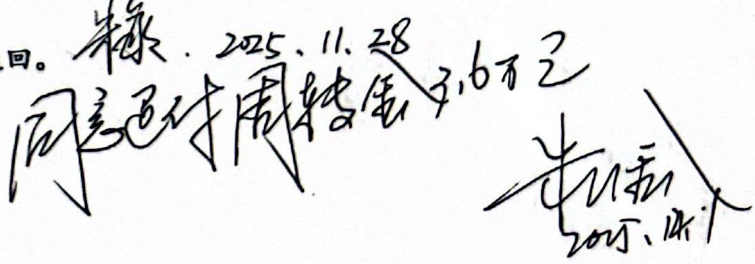 回。 2025.11.28
同意退付周转金3.6万元
2025.12.1